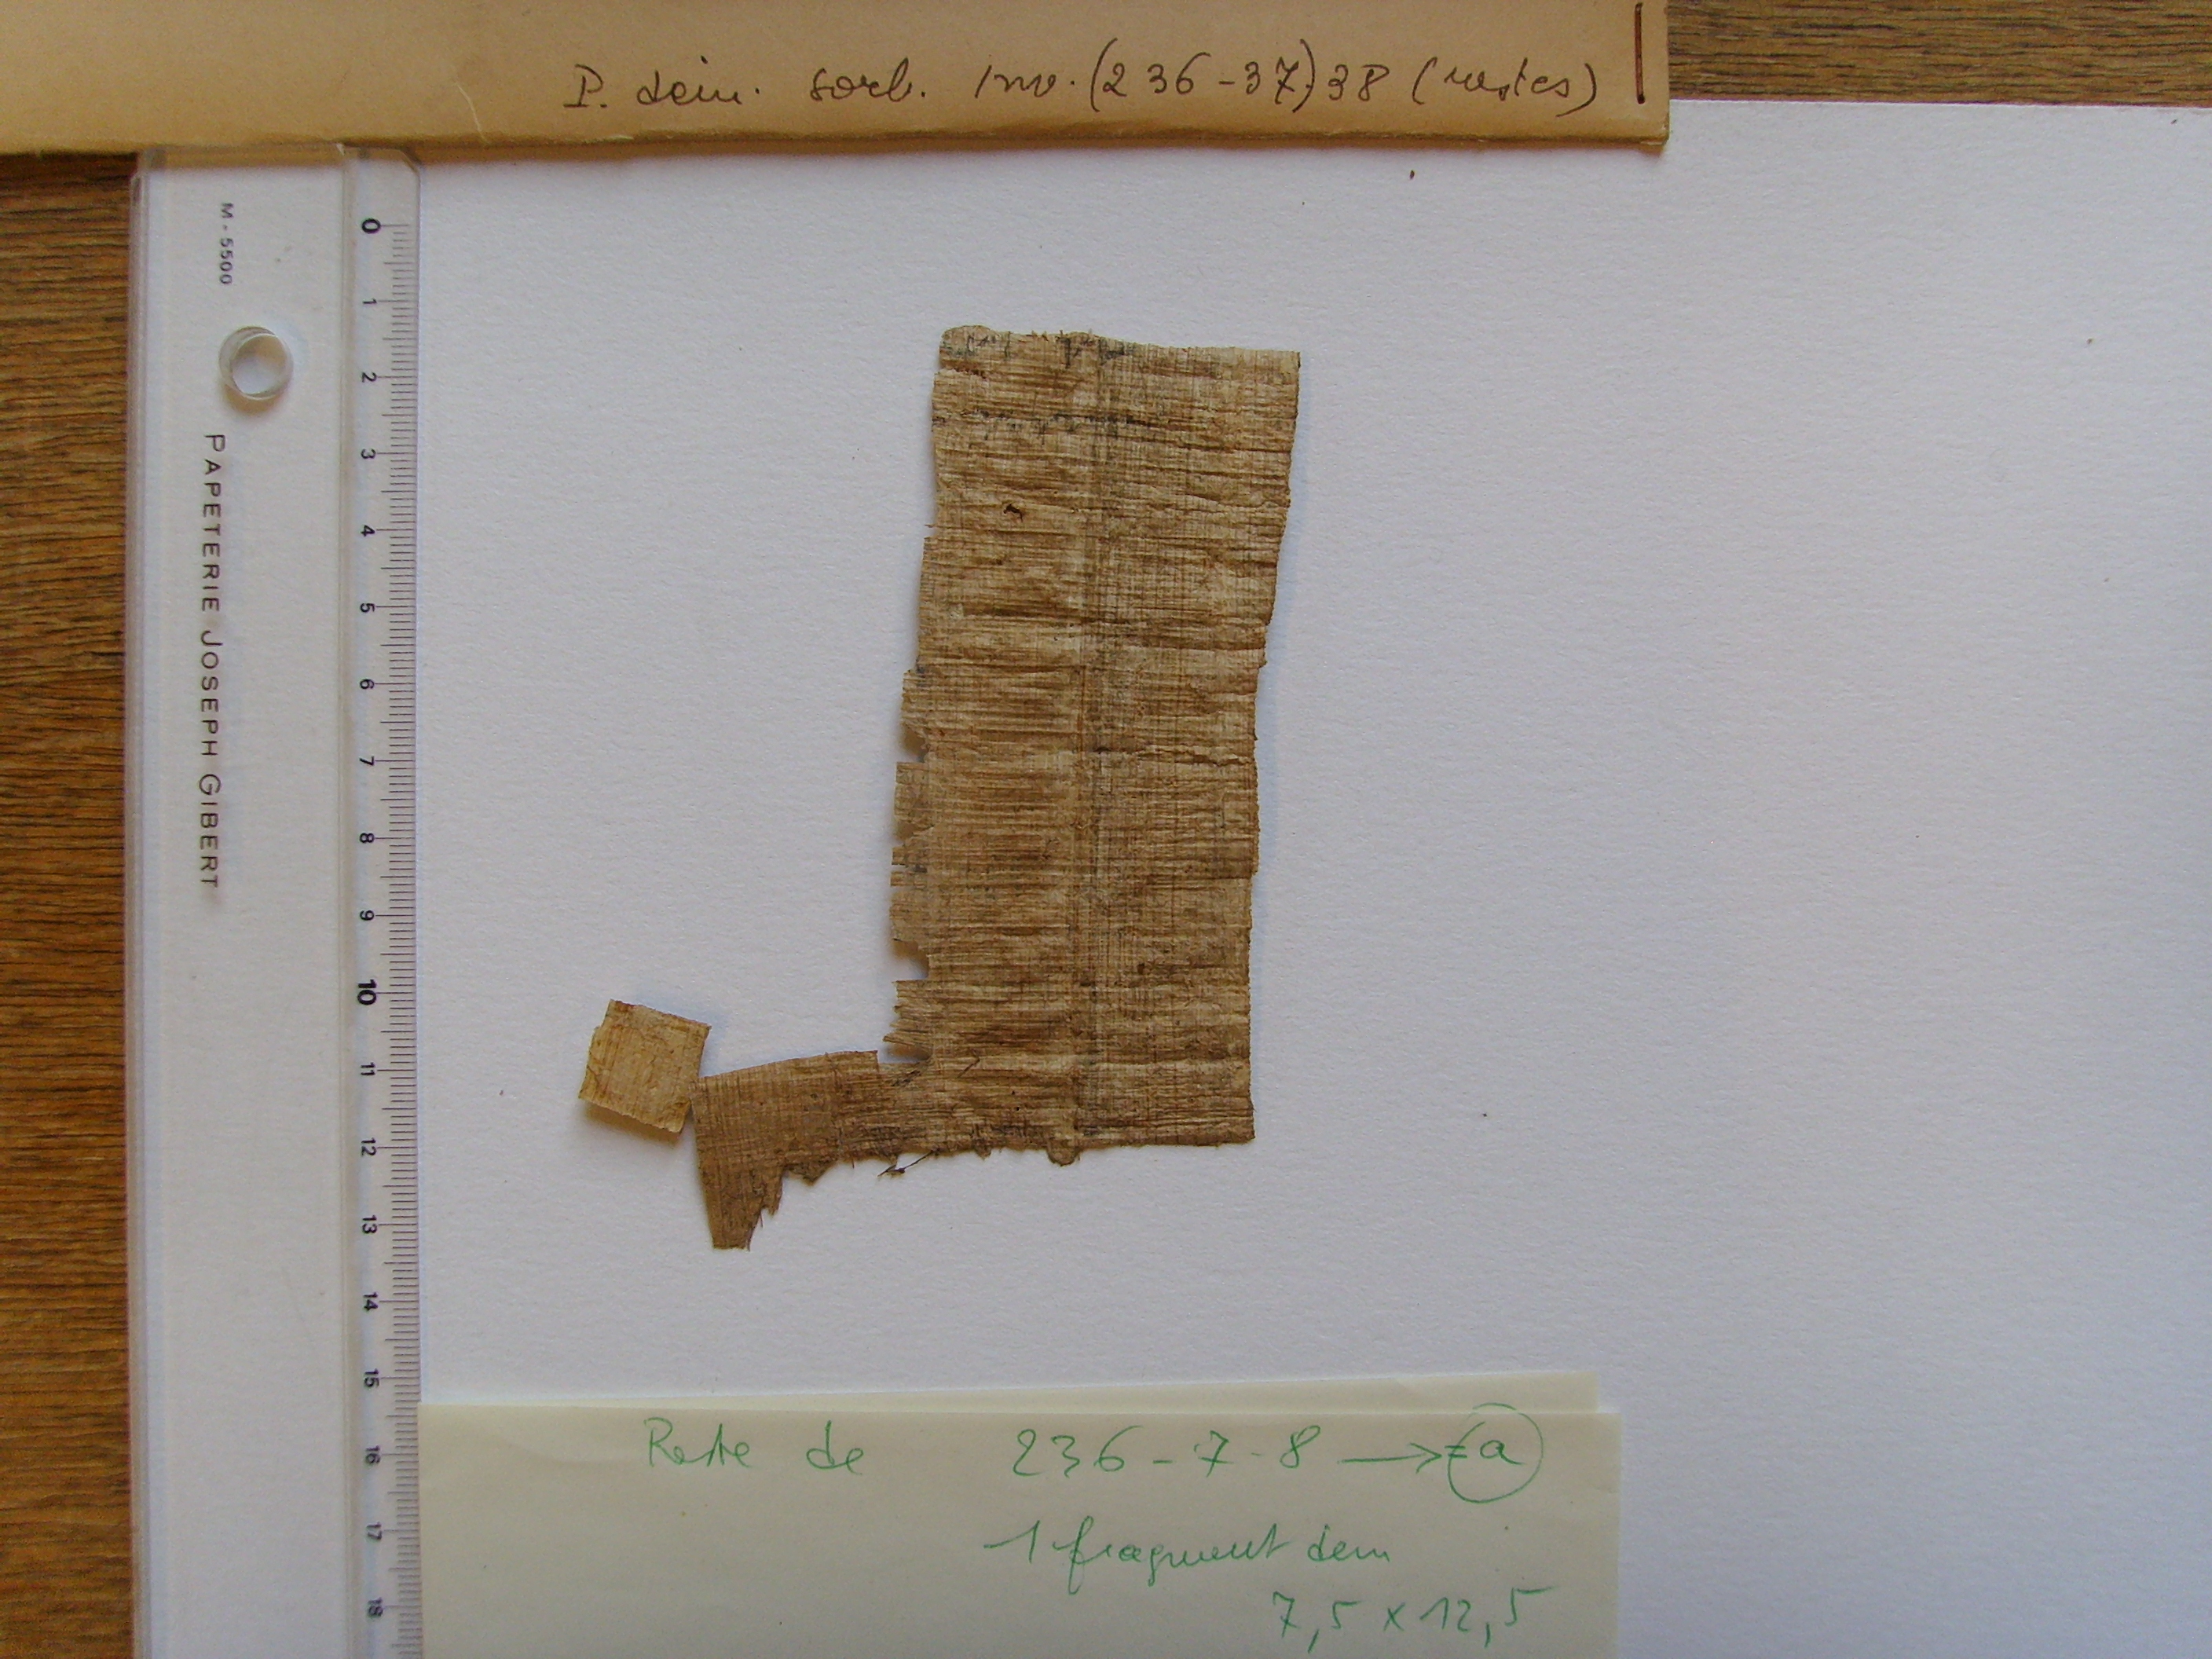 P. dém. sorb. Inv. (236-37) 38 (restes)
M-5500
PAPETERIE JOSEPH GIBERT
0 1 2 3 4 5 6 7 8 9 10 11 12 13 14 15 16 17 18
Reste de 236-7-8 → = a
1 fragment dem
7,5 x 12,5